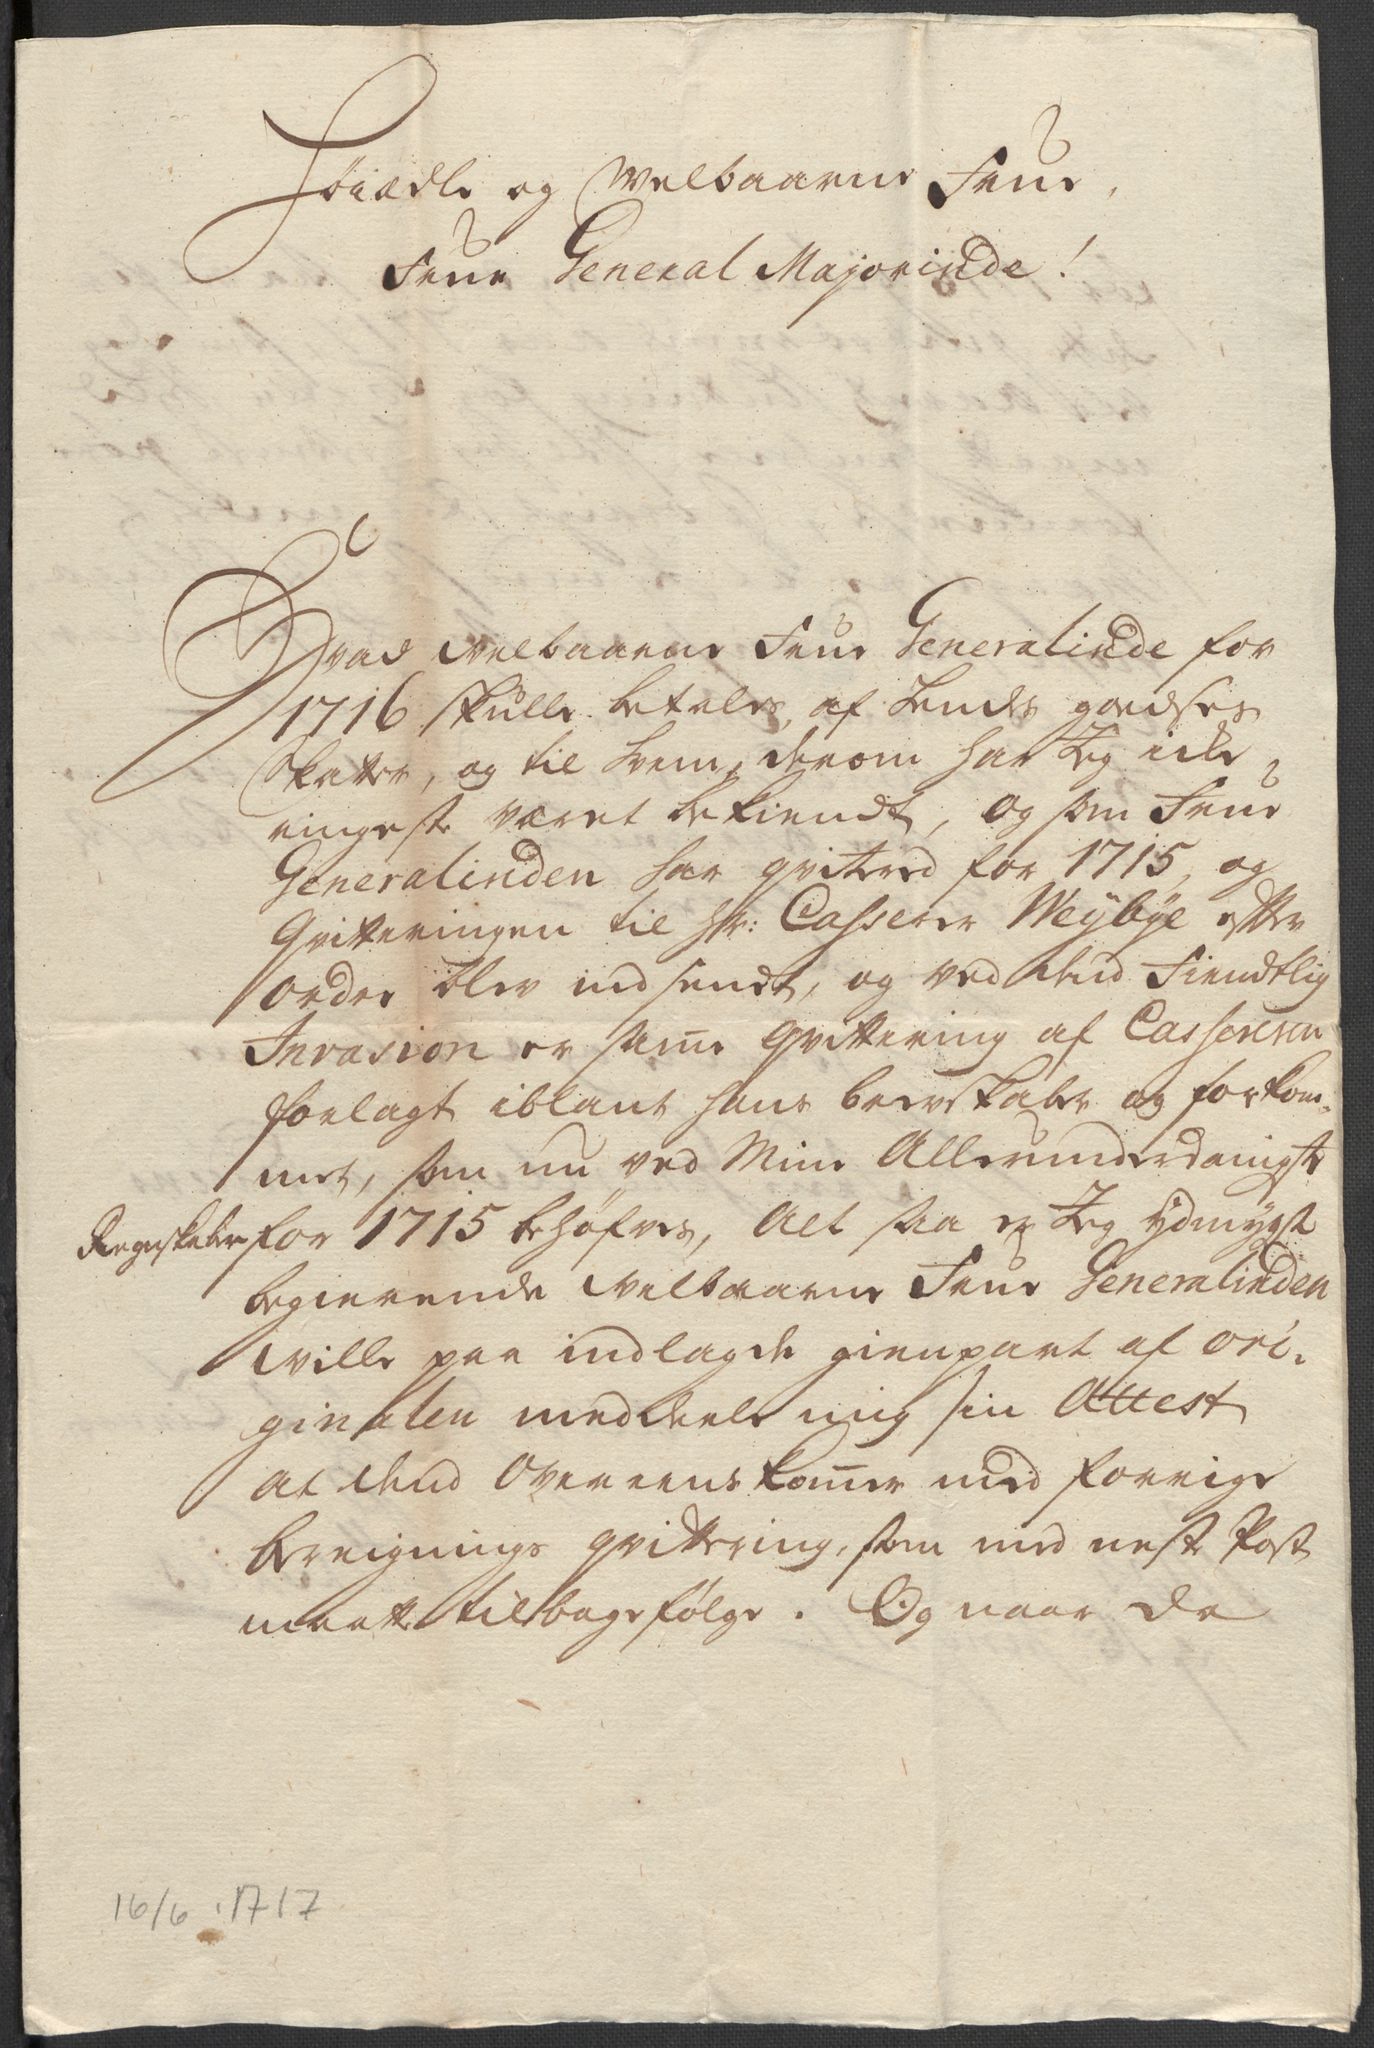 Høiædle og Welbaarne Frue,
Frue General Majorinde!
Hvad Welbaarne Frue Generalinde for
1716 skulle betales, af Hendes goedses
Skatter, og til hvem, derom har Jeg icke
ringeste været bekiendt, og som Frue
Generalinden har qvitered for 1715, og
Qvitteringen til Hr: Casserer Weybye efter
order blev indsendt, og ved dend Fiendtlig
Invasion er samme Qvittering af Cassereren
forlagt iblant hans brevskaber og forkom-
met, som nu ved Mine Allerunderdanigste
Regenskaber for 1715 behøfves, Alt saa er Jeg ydmygst
begierende Welbaarne Frue Generalinden
wille paa indlagde gienpart af ori-
ginalen meddeele mig sin Attest
at dend Overeenskommer med forrige
bereignings qvittering, som med neste Post
maatte tilbage følge. Og naar de
16/6 . 1717